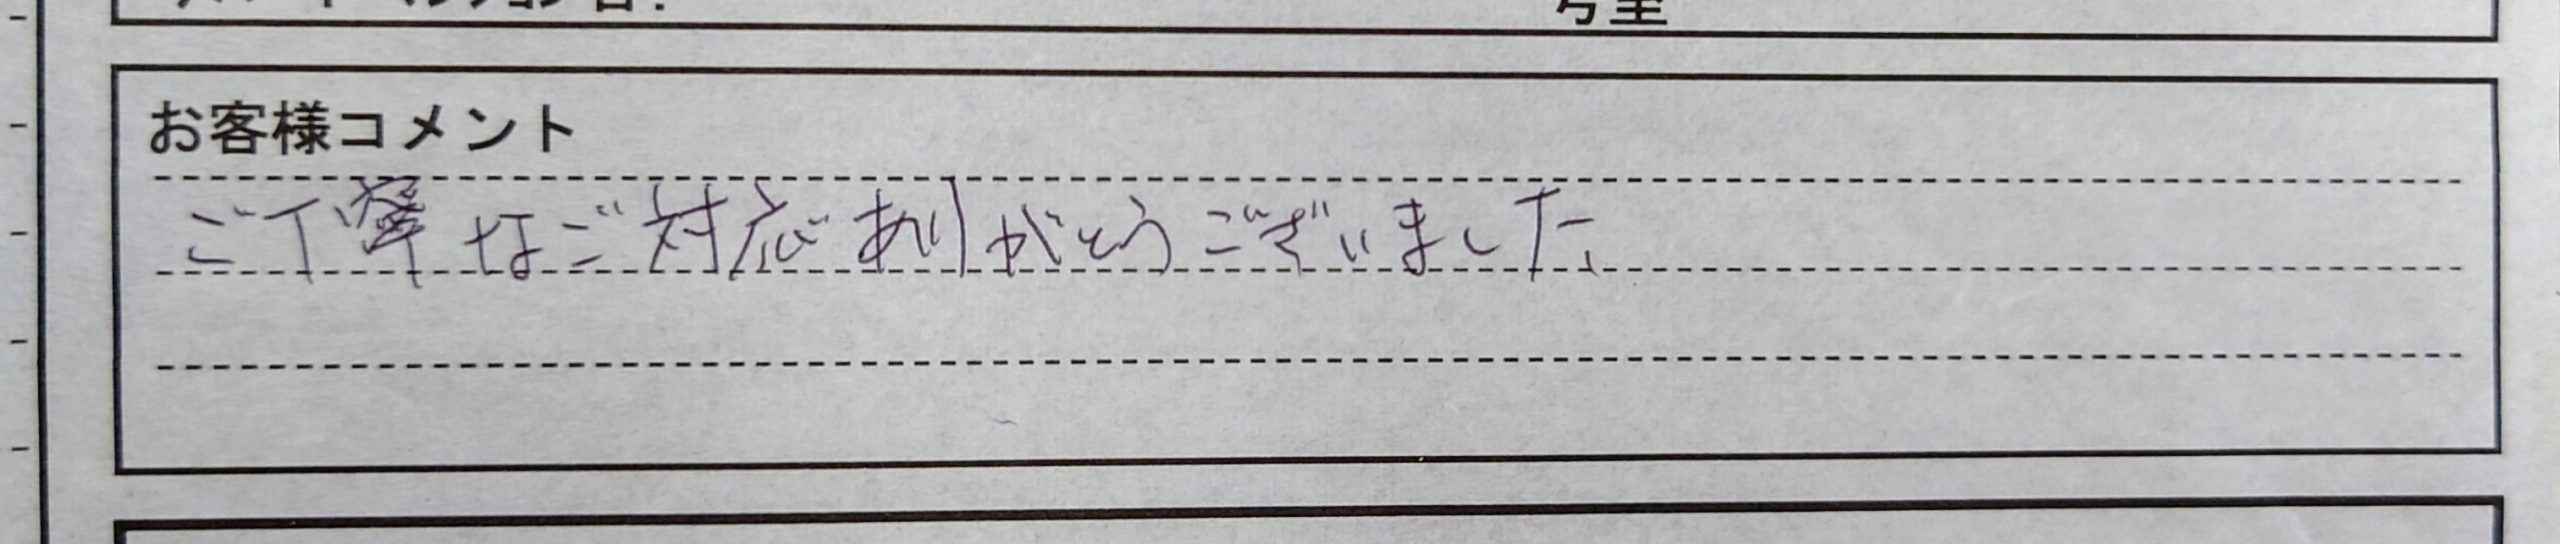 号室
お客様コメント
ご丁寧なご対応ありがとうございました